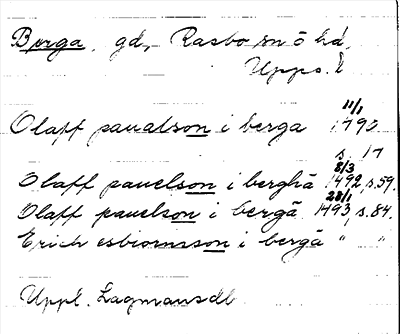 Berga, gd, Rasbo sn ö hd,
Upps. l
11/1
Olaff paualson i berga 1490
s. 17
8/3
Olaff pauelson i berghā 1492, s. 59.
28/1
Olaff pauelson i bergā 1493, s. 84.
Erich esbiornsson i bergā " "
Uppl. Lagmansdb